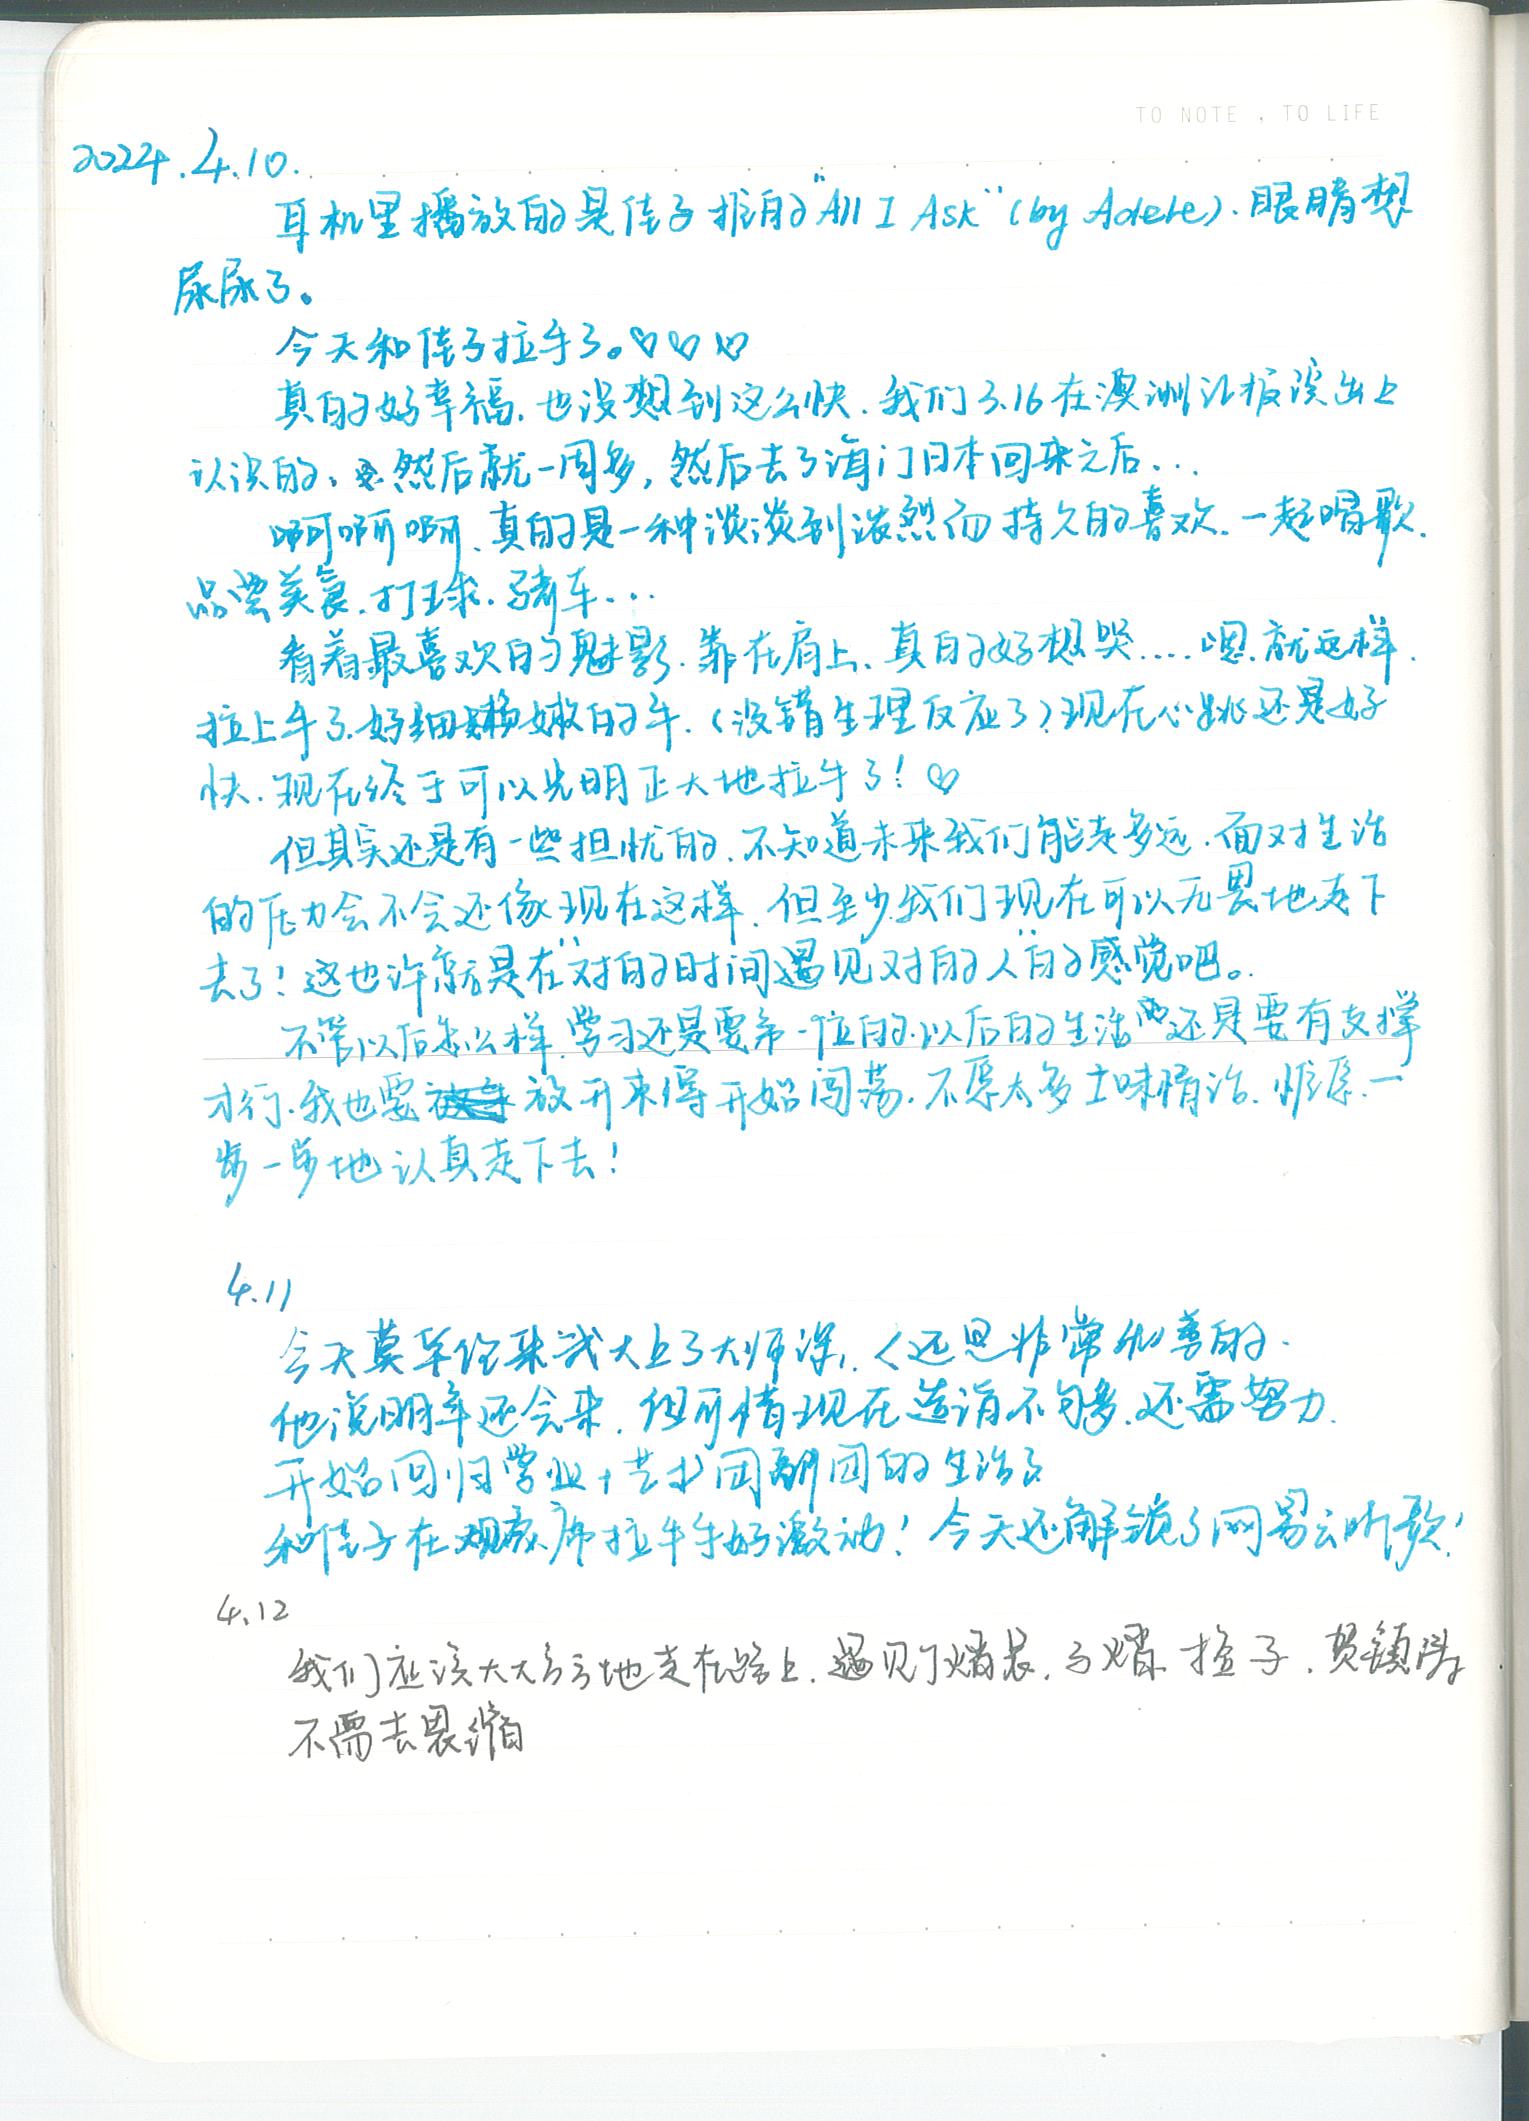 TO NOTE , TO LIFE
2024.4.10.
耳机里播放的是佳子推的"All I Ask"(by Adele).眼睛想
尿尿了。
今天和佳子拉手了。♡♡♡
真的好幸福.也没想到这么快.我们3.16在澳洲汇报演出上
认识的、然后就一周多,然后去了海门日本回来之后...
啊啊啊、真的是一种淡淡到浓烈而持久的喜欢.一起唱歌.
品尝美食.打球.骑车...
看着最喜欢的魅影.靠在肩上、真的好想哭....嗯.就这样.
拉上手了.好细嫩的手.(没错生理反应了)现在心跳还是好
快.现在终于可以光明正大地拉手了!♡
但其实还是有一些担忧的.不知道未来我们能走多远.面对生活
的压力会不会还像现在这样.但至少我们现在可以无畏地走下
去了!这也许就是在"对的时间遇见对的人"的感觉吧。
不管以后怎么样.学习还是要第一位的.以后的生活还是要有支撑
才行.我也要放开来得开始闯荡.不愿太多土味情话.惟愿一
步一步地认真走下去!
4.11
今天莫华伦来我大上了大师课,(还是非常和善的.
他说明年还会来.但可惜现在造诣不够多.还需努力.
开始回归学业+艺术团副团的生活了
和佳子在观众席拉牛牛好激动!今天还解锁了网易云听歌!
4.12
我们应该大大方方地走在路上.遇见了
不需去畏缩